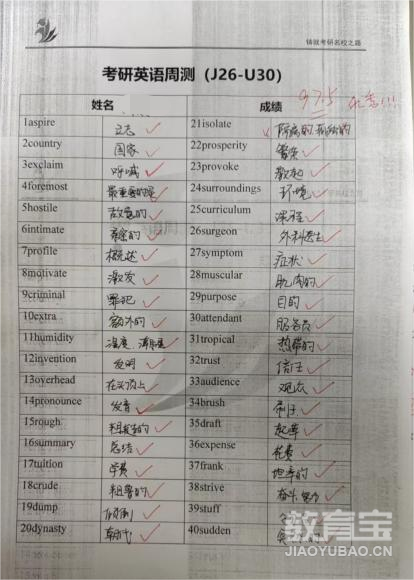 铸就考研名校之路
考研英语周测（J26-U30）
姓名 成绩 97.5 优秀!!!
1aspire 立志 21isolate 隔离的 孤独的
2country 国家 22prosperity 繁荣
3exclaim 呼喊 23provoke 激起
4foremost 最重要的是 24surroundings 环境
5hostile 敌意的 25curriculum 课程
6intimate 亲密的 26surgeon 外科医生
7profile 概述 27symptom 症状
8motivate 激发 28muscular 肌肉的
9criminal 罪犯 29purpose 目的
10extra 额外的 30attendant 服务员
11humidity 湿度 31tropical 热带的
12invention 发明 32trust 信任
13overhead 在头顶上 33audience 观众
14pronounce 发音 34brush 刷子
15rough 粗糙的 35draft 起草
16summary 总结 36expense 花费
17tuition 学费 37frank 坦率的
18crude 粗鲁的 38strive 奋斗
19dump 倾倒 39stuff
20dynasty 朝代 40sudden
教育宝
JIAOYUBAO.CN